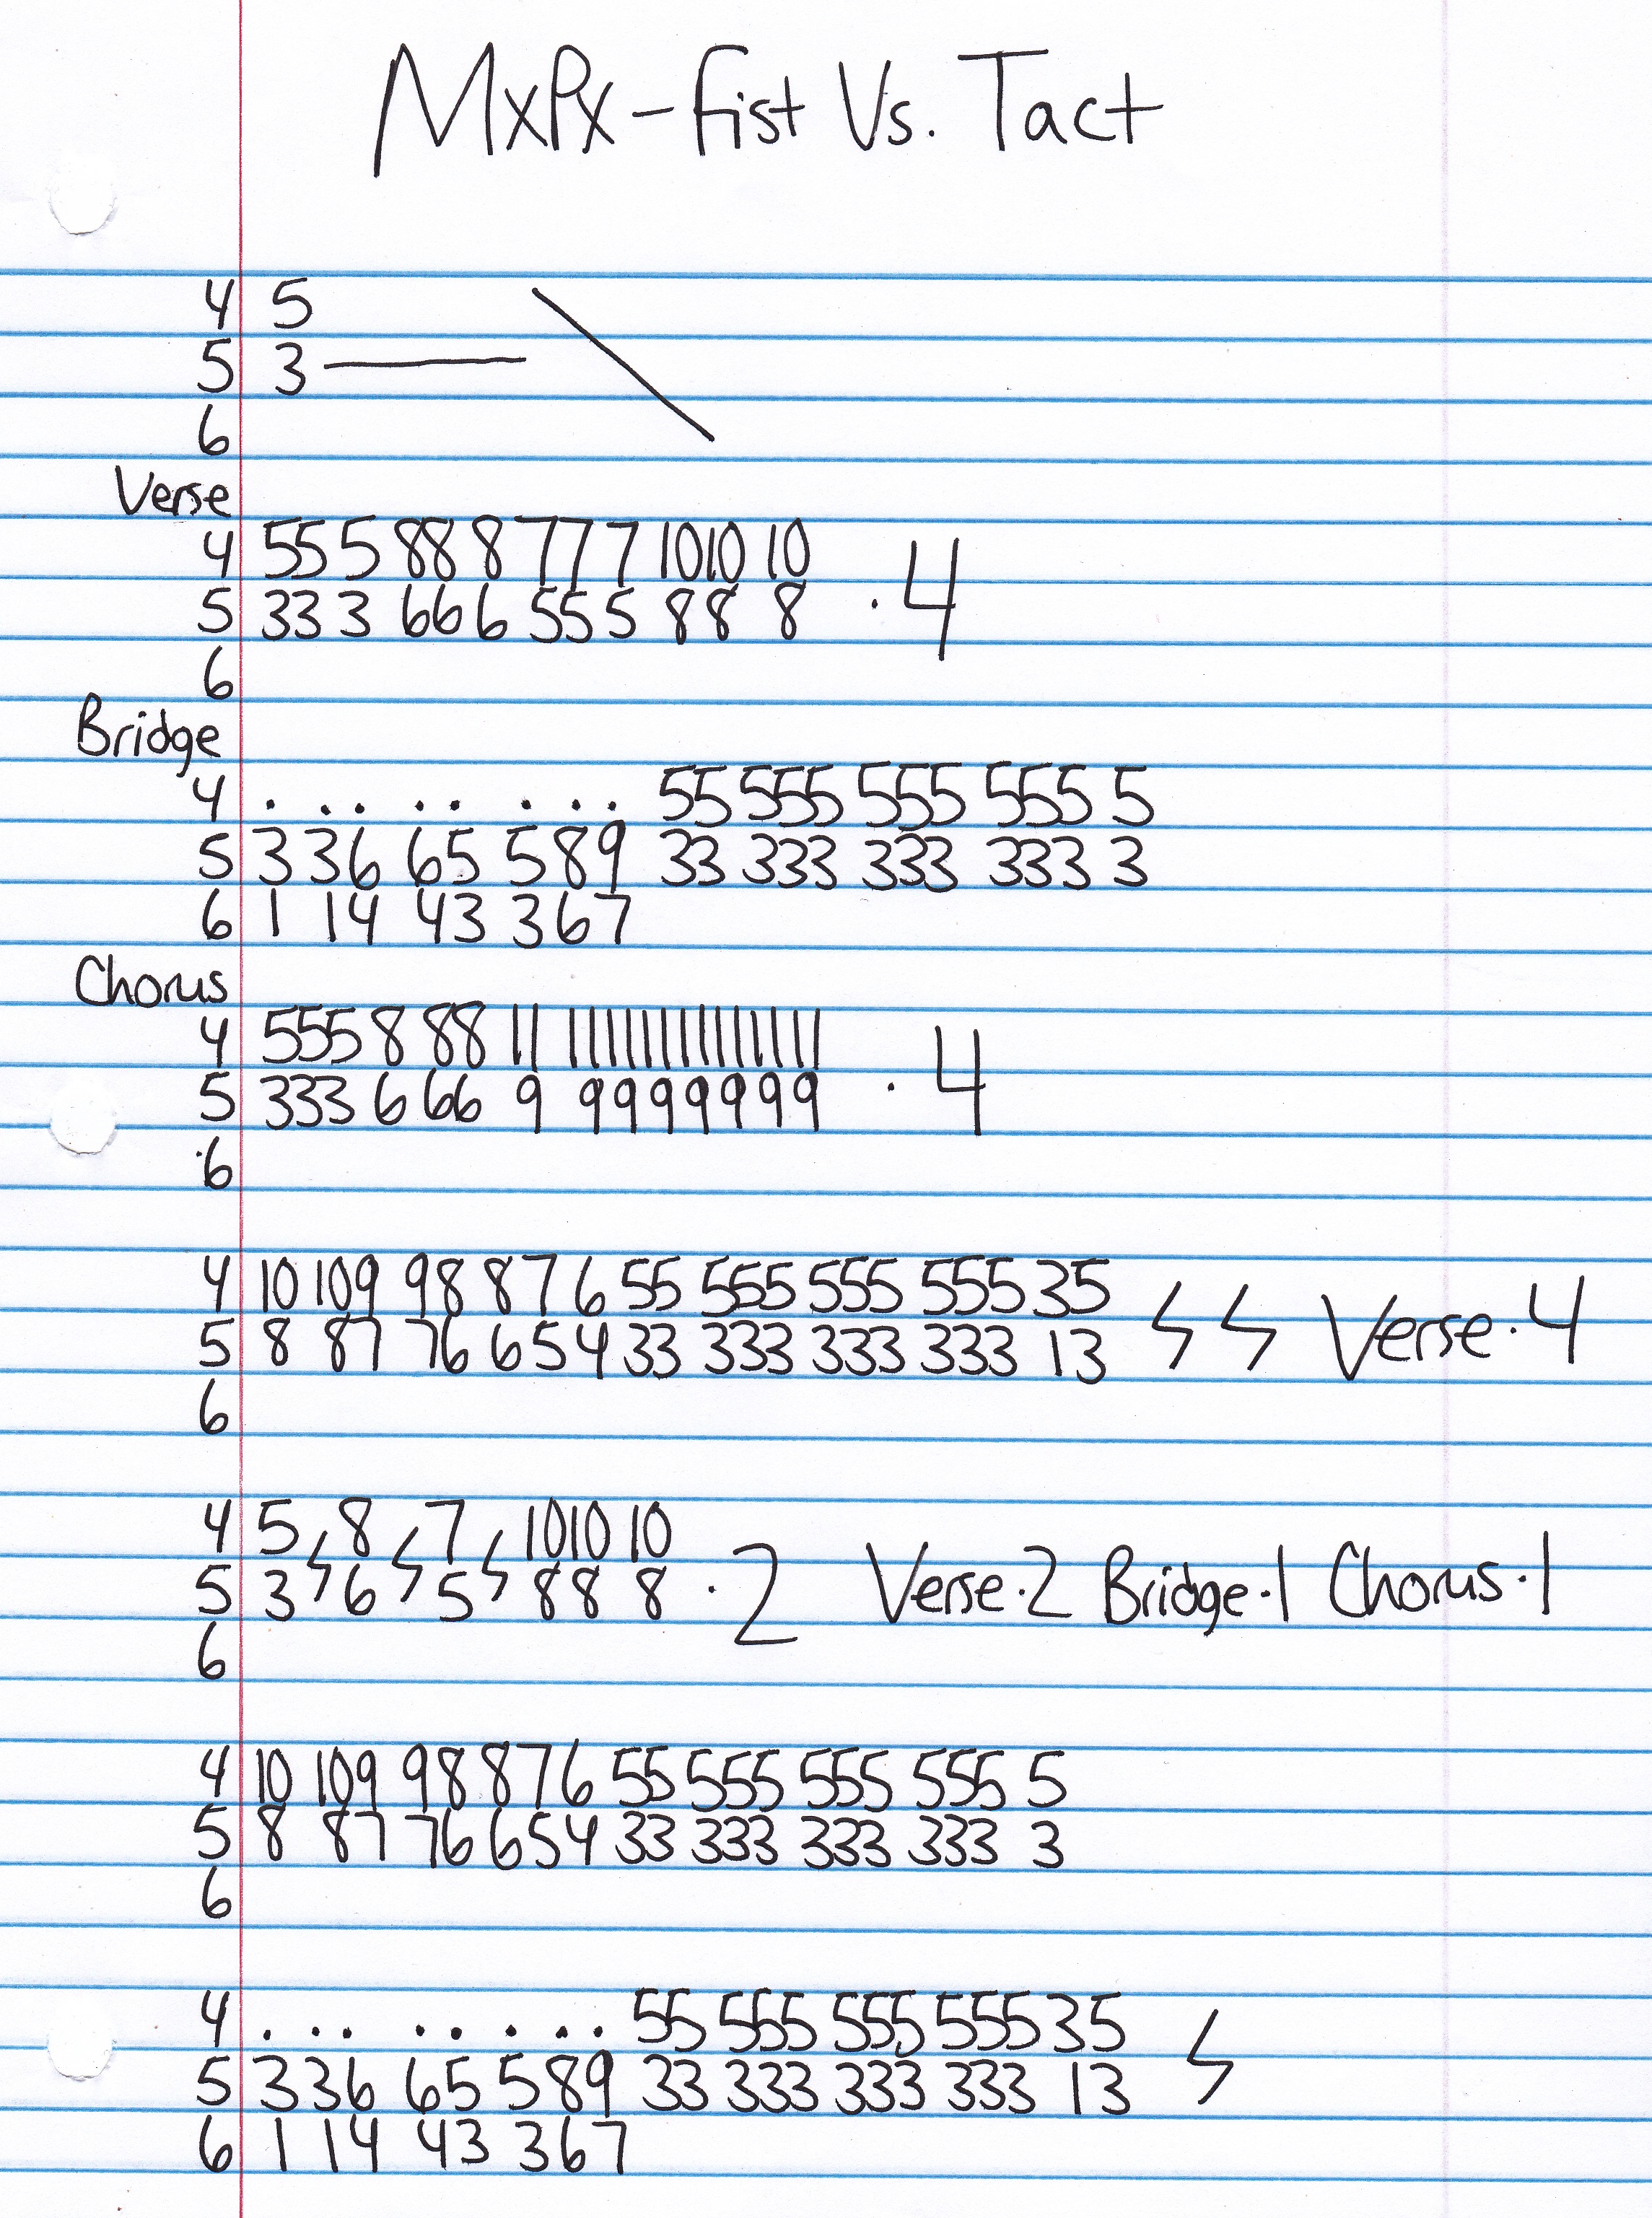 MxPx - Fist Vs. Tact
4 5
5 3
6
Verse
4 55 5 88 8 77 7 1010 10
5 33 3 66 6 55 5 88 8 · 4
6
Bridge
4 . . . . . . . . 55 555 555 555 5
5 3 36 65 5 89 33 333 333 333 3
6 1 14 43 3 67
Chorus
4 555 8 88 11 11111111111111
5 333 6 66 9 9999999 · 4
6
4 10 109 98 87 6 55 555 555 555 35
5 8 87 76 654 33 333 333 333 13 Verse · 4
6
4 5 8 7 1010 10
5 3 6 5 88 8 · 2 Verse · 2 Bridge · 1 Chorus · 1
6
4 10 109 98 876 55 555 555 555 5
5 8 87 76 654 33 333 333 333 3
6
4 . . . . . . . . 55 555 555 555 35
5 3 36 65 5 89 33 333 333 333 13
6 1 14 43 3 67